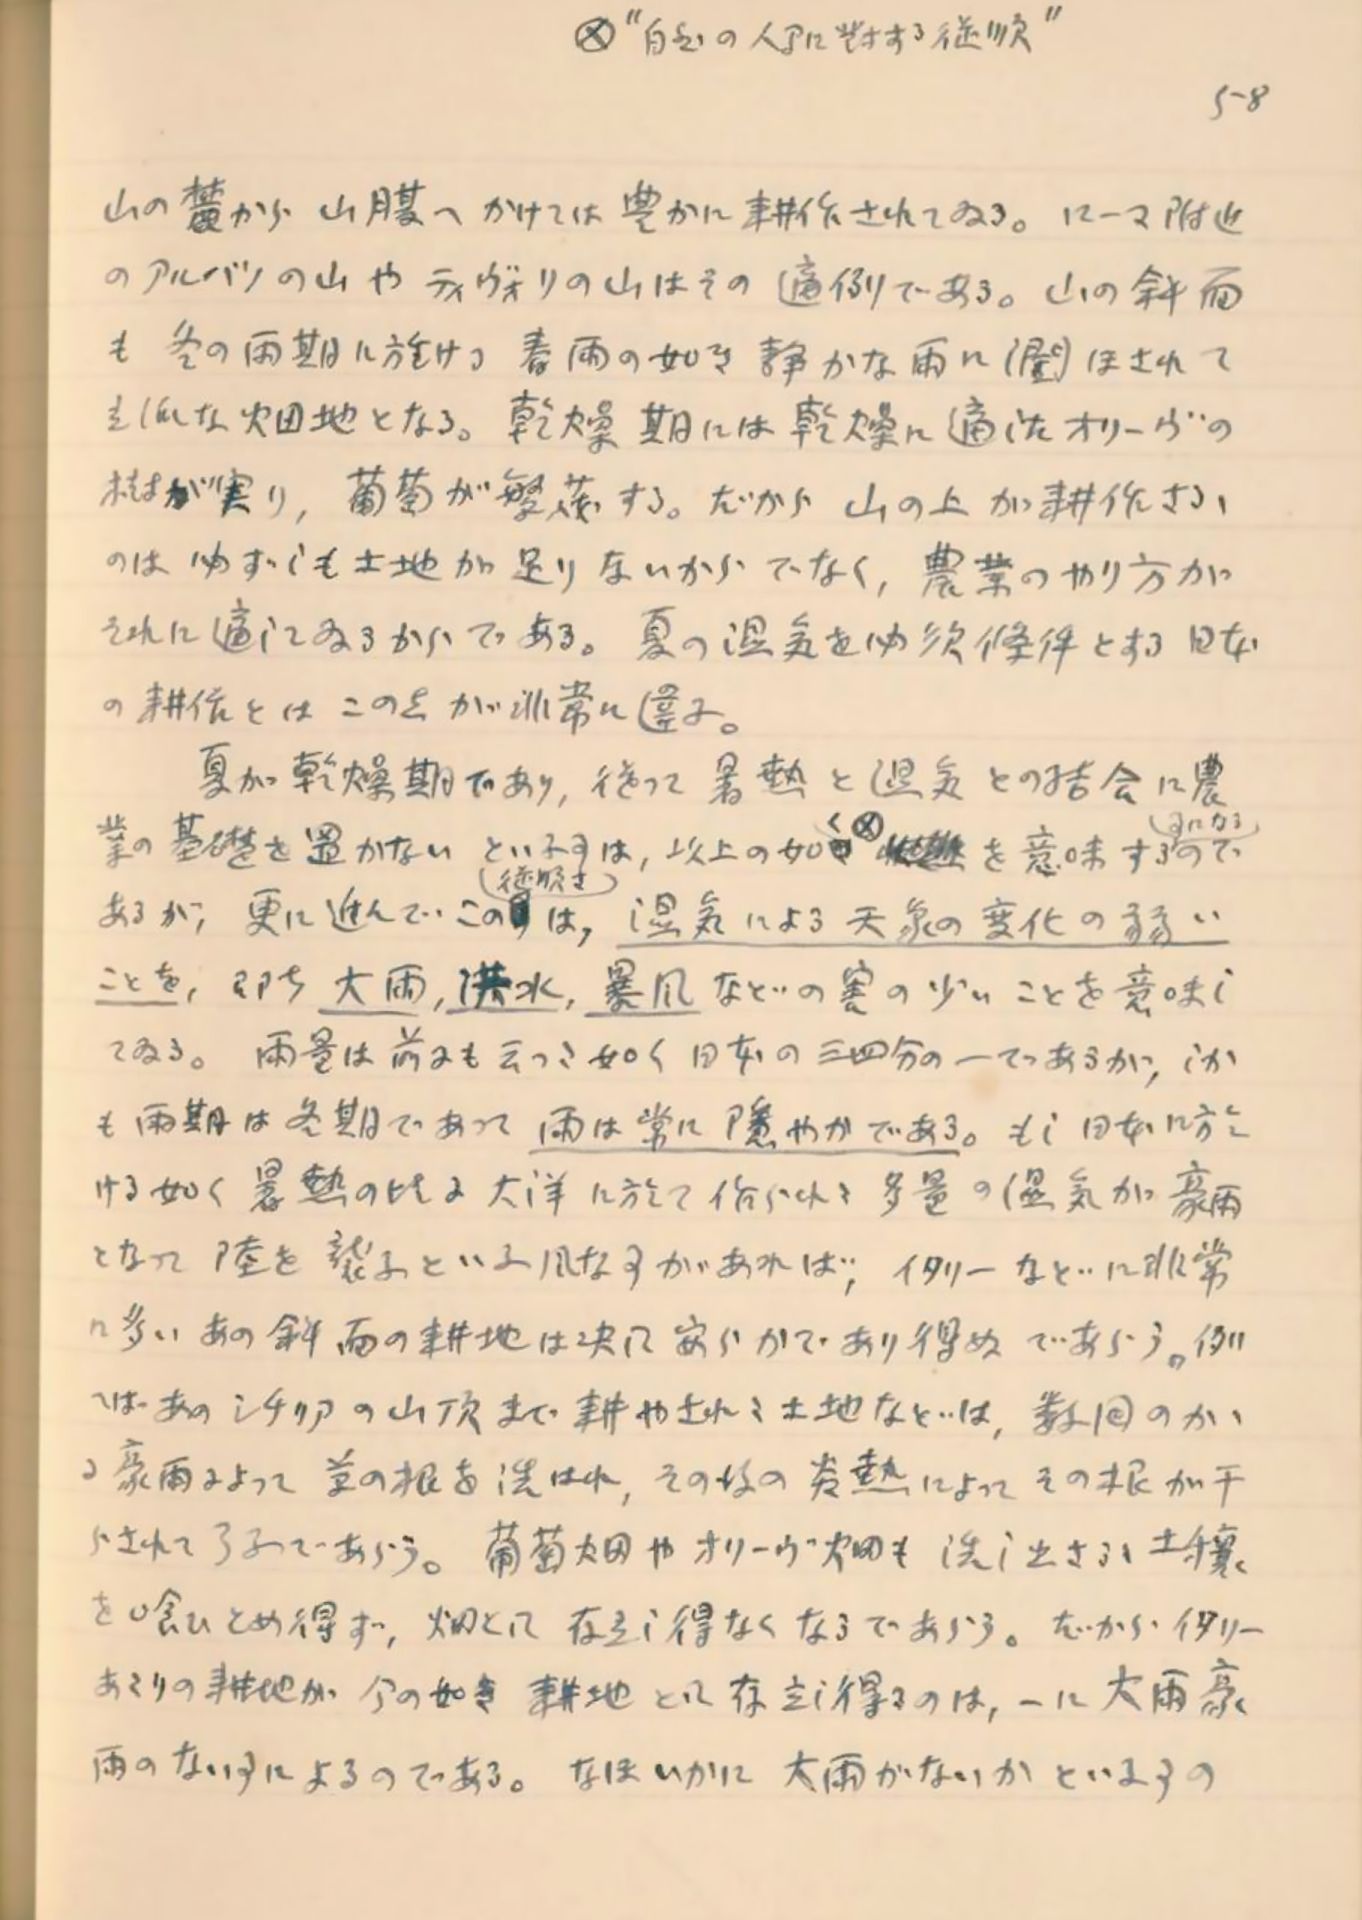 ⊗"自然の人間に対する従順"
5-8
山の麓から山腹へかけては豊かに耕作されてゐる。ローマ附近
のアルバノの山やティヴォリの山はその適例である。山の斜面
も冬の雨期に於ける春雨の如き静かな雨に湿ほされて
立派な畑地となる。乾燥期には乾燥に適したオリーヴの
樹が実り,葡萄が繁茂する。だから山の上が耕作さるゝ
のは必ずしも土地が足りないからでなく,農業のやり方が
それに適してゐるからである。夏の湿気を必須條件とする日本
の耕作とはこの点が非常に違ふ。
夏が乾燥期であり,従つて暑熱と湿気との結合に農
業の基礎を置かないといふ事は,以上の如く⊗を意味する事になるので
あるが,更に進んでこの従順さは,湿気による天象の変化の弱い
ことを,即ち大雨,洪水,暴風などの害の少いことを意味し
てゐる。雨量は前にも云つた如く日本の三四分の一であるが,しか
も雨期は冬期であつて雨は常に穏やかである。もし日本に於
ける如く暑熱の比る大洋に於て作られた多量の湿気が豪雨
となつて陸を襲ふといふ風な事があれば,イタリーなどに非常
に多いあの斜面の耕地は決して安らかであり得ぬであらう。例
へばあのシチリアの山頂まで耕やされた土地などは,数回のかゝ
る豪雨によつて草の根を洗はれ,その後の炎熱によつてその根が干
らされて了ふであらう。葡萄畑やオリーヴ畑も洗し出さるゝ土壌
を喰ひとめ得ず,畑として存立し得なくなるであらう。だからイタリー
あたりの耕地が今の如き耕地として存立し得るのは,一に大雨豪
雨のない事によるのである。なほいかに大雨がないかといふ事の